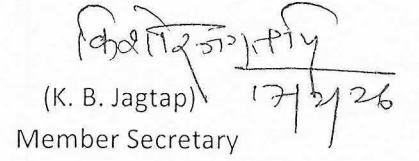 किशोर जगताप
(K. B. Jagtap)
Member Secretary